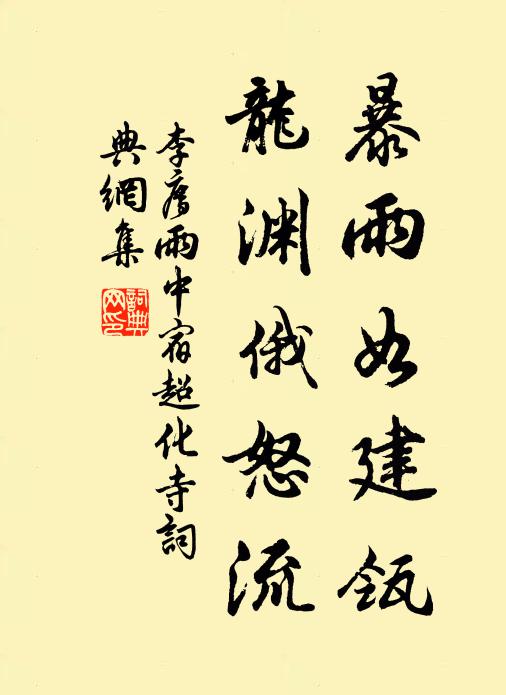 暴雨如建瓴
龍淵俄怒流
李廌雨中宿超化寺詞
典網集
詞典
网印